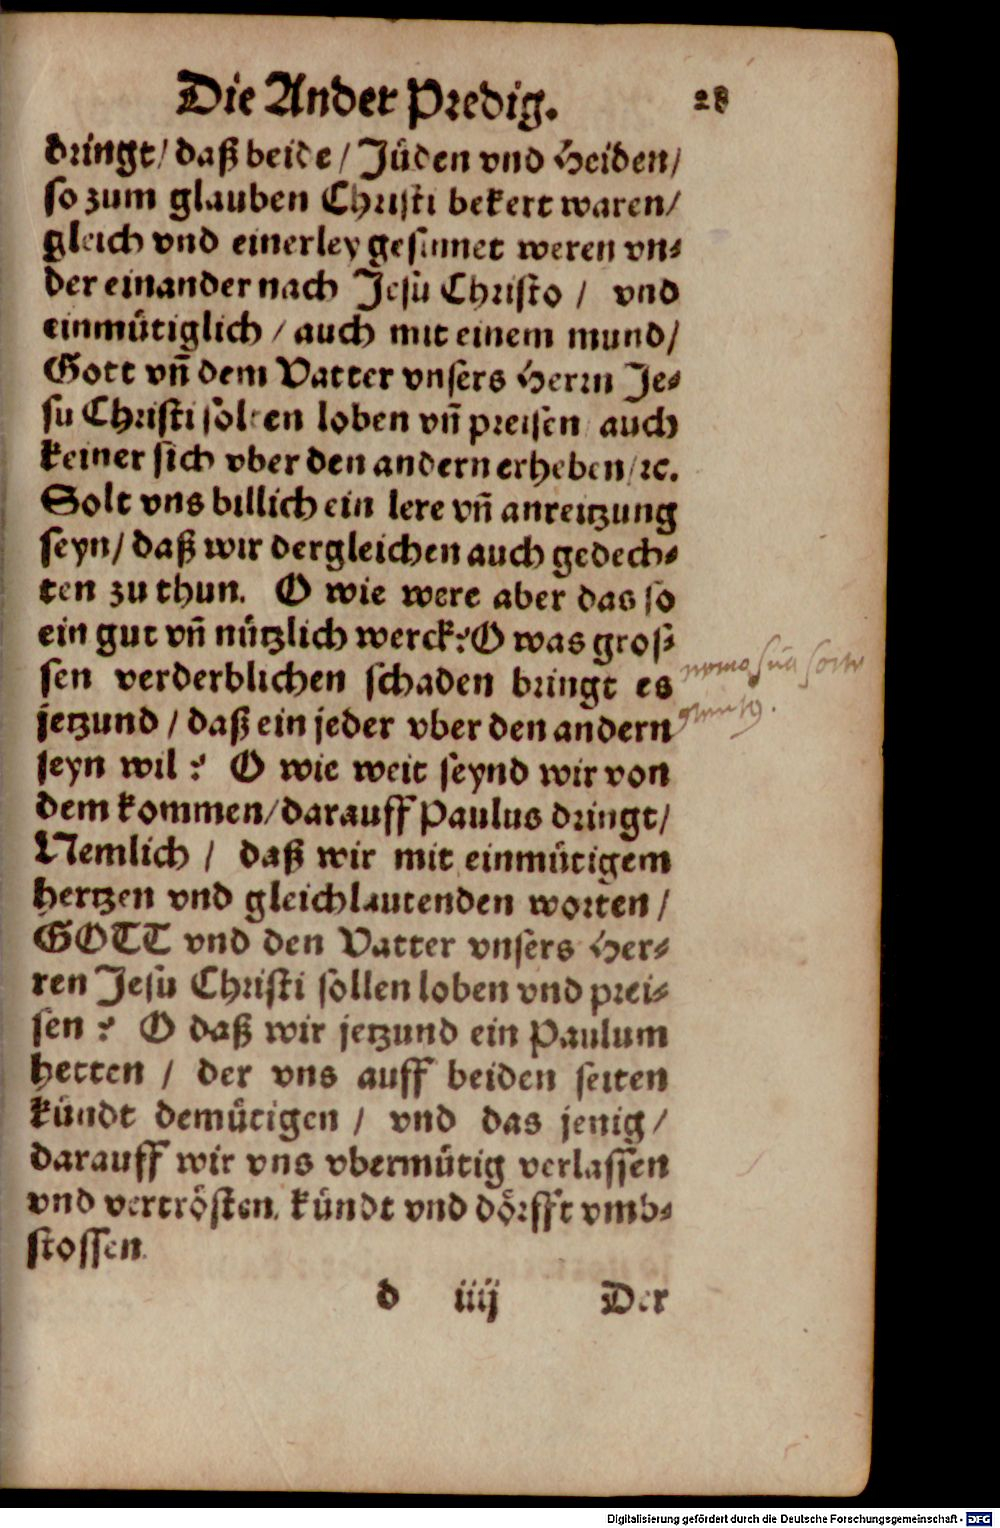 Die Ander Predig. 28
dringt/ daß beide/ Jüden vnd Heiden/
so zum glauben Christi bekert waren/
gleich vnd einerley gesinnet weren vn⸗
der einander nach Jesu Christo / vnd
einmütiglich / auch mit einem mund/
Gott vn̄ dem Vatter vnsers Herrn Je⸗
su Christi solten loben vn̄ preisen auch
keiner sich vber den andern erheben/ ꝛc.
Solt vns billich ein lere vn̄ anreitzung
seyn/ daß wir dergleichen auch gedech⸗
ten zu thun. O wie were aber das so
ein gut vn̄ nützlich werck? O was gros⸗
sen verderblichen schaden bringt es
jetzund / daß ein jeder vber den andern
seyn wil? O wie weit seynd wir von
dem kommen/ darauff Paulus dringt/
Nemlich / daß wir mit einmütigem
hertzen vnd gleichlautenden worten /
GOTT vnd den Vatter vnsers Her⸗
ren Jesu Christi sollen loben vnd prei⸗
sen? O daß wir jetzund ein Paulum
hetten / der vns auff beiden seiten
kündt demütigen / vnd das jenig/
darauff wir vns vbermütig verlassen
vnd vertrösten, kündt vnd dörfft vmb⸗
stossen.
d iiij Der
nemo sua sorte
Digitalisierung gefördert durch die Deutsche Forschungsgemeinschaft - DFG